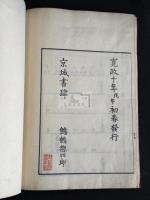 寛政十年戊午初春發行
京城書肆
鶴鵜惣四郎